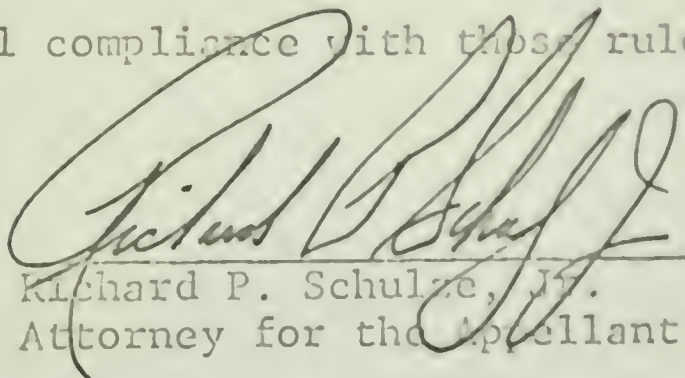 l compliance with those rule
Richard P. Schulze, Jr.
Richard P. Schulze, Jr.
Attorney for the Appellant